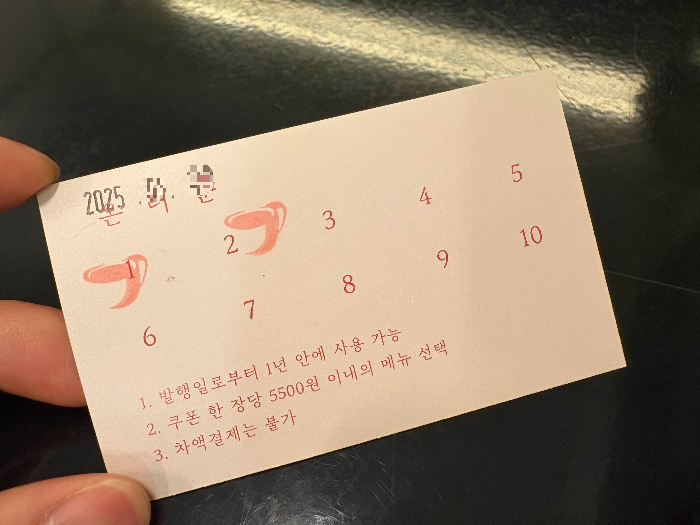 2025
1 2 3 4 5
6 7 8 9 10
1. 발행일로부터 1년 안에 사용 가능
2. 쿠폰 한 장당 5500원 이내의 메뉴 선택
3. 차액결제는 불가